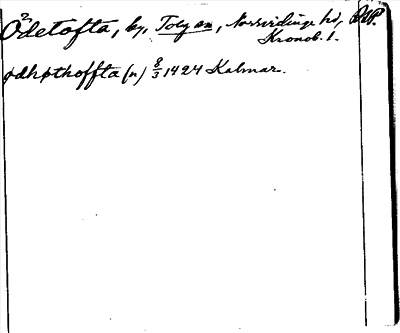 2
Ödetofta, by, Tolg sn, Norrvidinge hd,
Kronob. l.
ødhøthoffta (n) 8/3 1424 Kalmar.